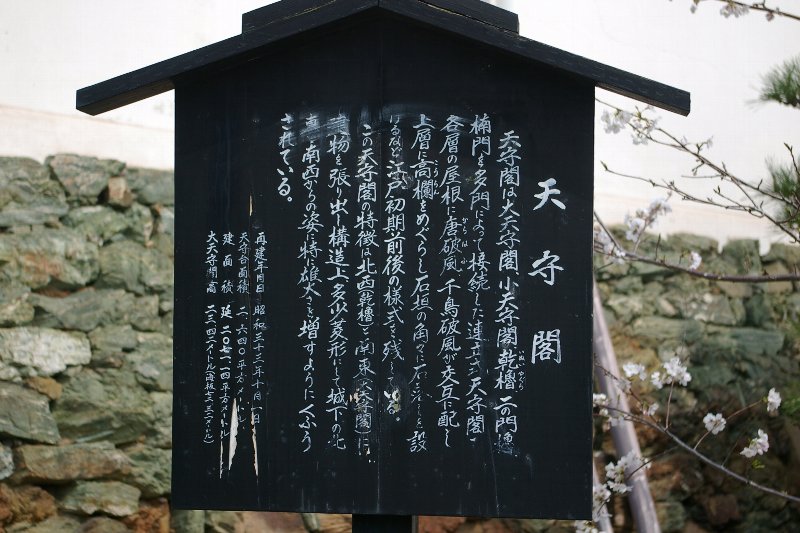 天守閣
天守閣は大天守閣小天守閣乾櫓二の門櫓
楠門を多門によって接続した連立式天守閣で
各層の屋根に唐破風千鳥破風が交互に配し
上層に高欄をめぐらし石垣の角々に石落しを設
けるなど江戸初期前後の様式を残している。
この天守閣の特徴は北西(乾櫓)と南東(大天守閣)に
建物を張り出し構造上多少菱形にて城下の北
東南西からの姿が特に雄大さを増すようにくふう
されている。
再建年月日 昭和三十三年十月一日
天守台面積 二六四〇平方メートル
建面積 延
大天守閣高